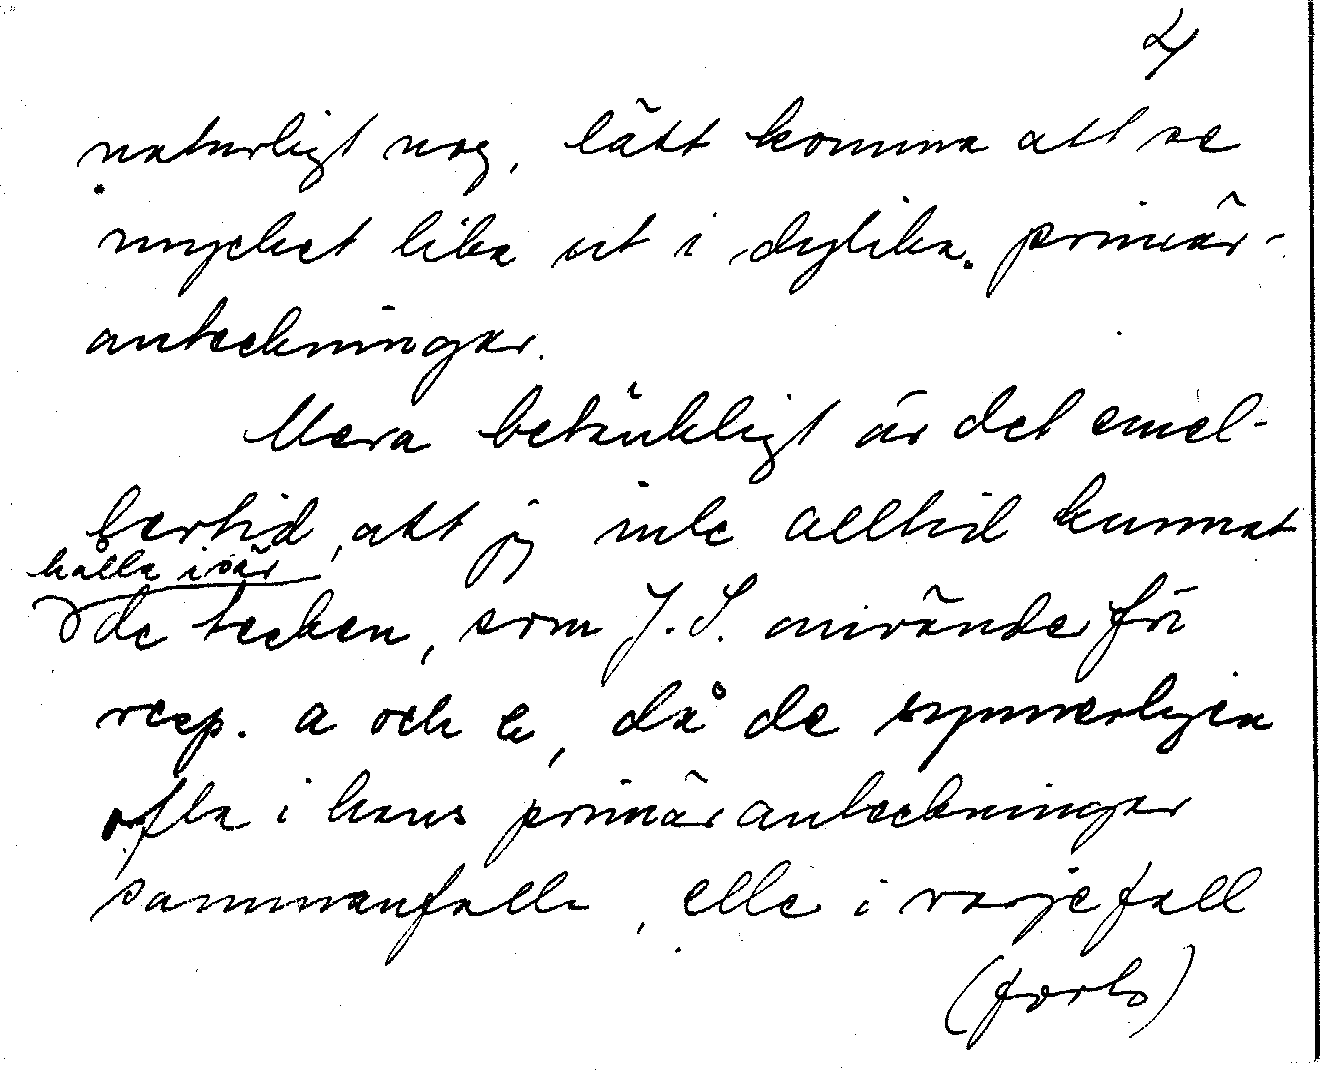 4
naturligt nog, lätt komma att se
mycket lika ut i dylika primär-
anteckningar.
Mera betänkligt är det emel-
lertid, att jag inte alltid kunnat
hålla isär
de tecken, som J. S. använde för
resp. a och e, då de synnerligen
ofta i hans primäranteckningar
sammanfalla, eller i varje fall
(forts)